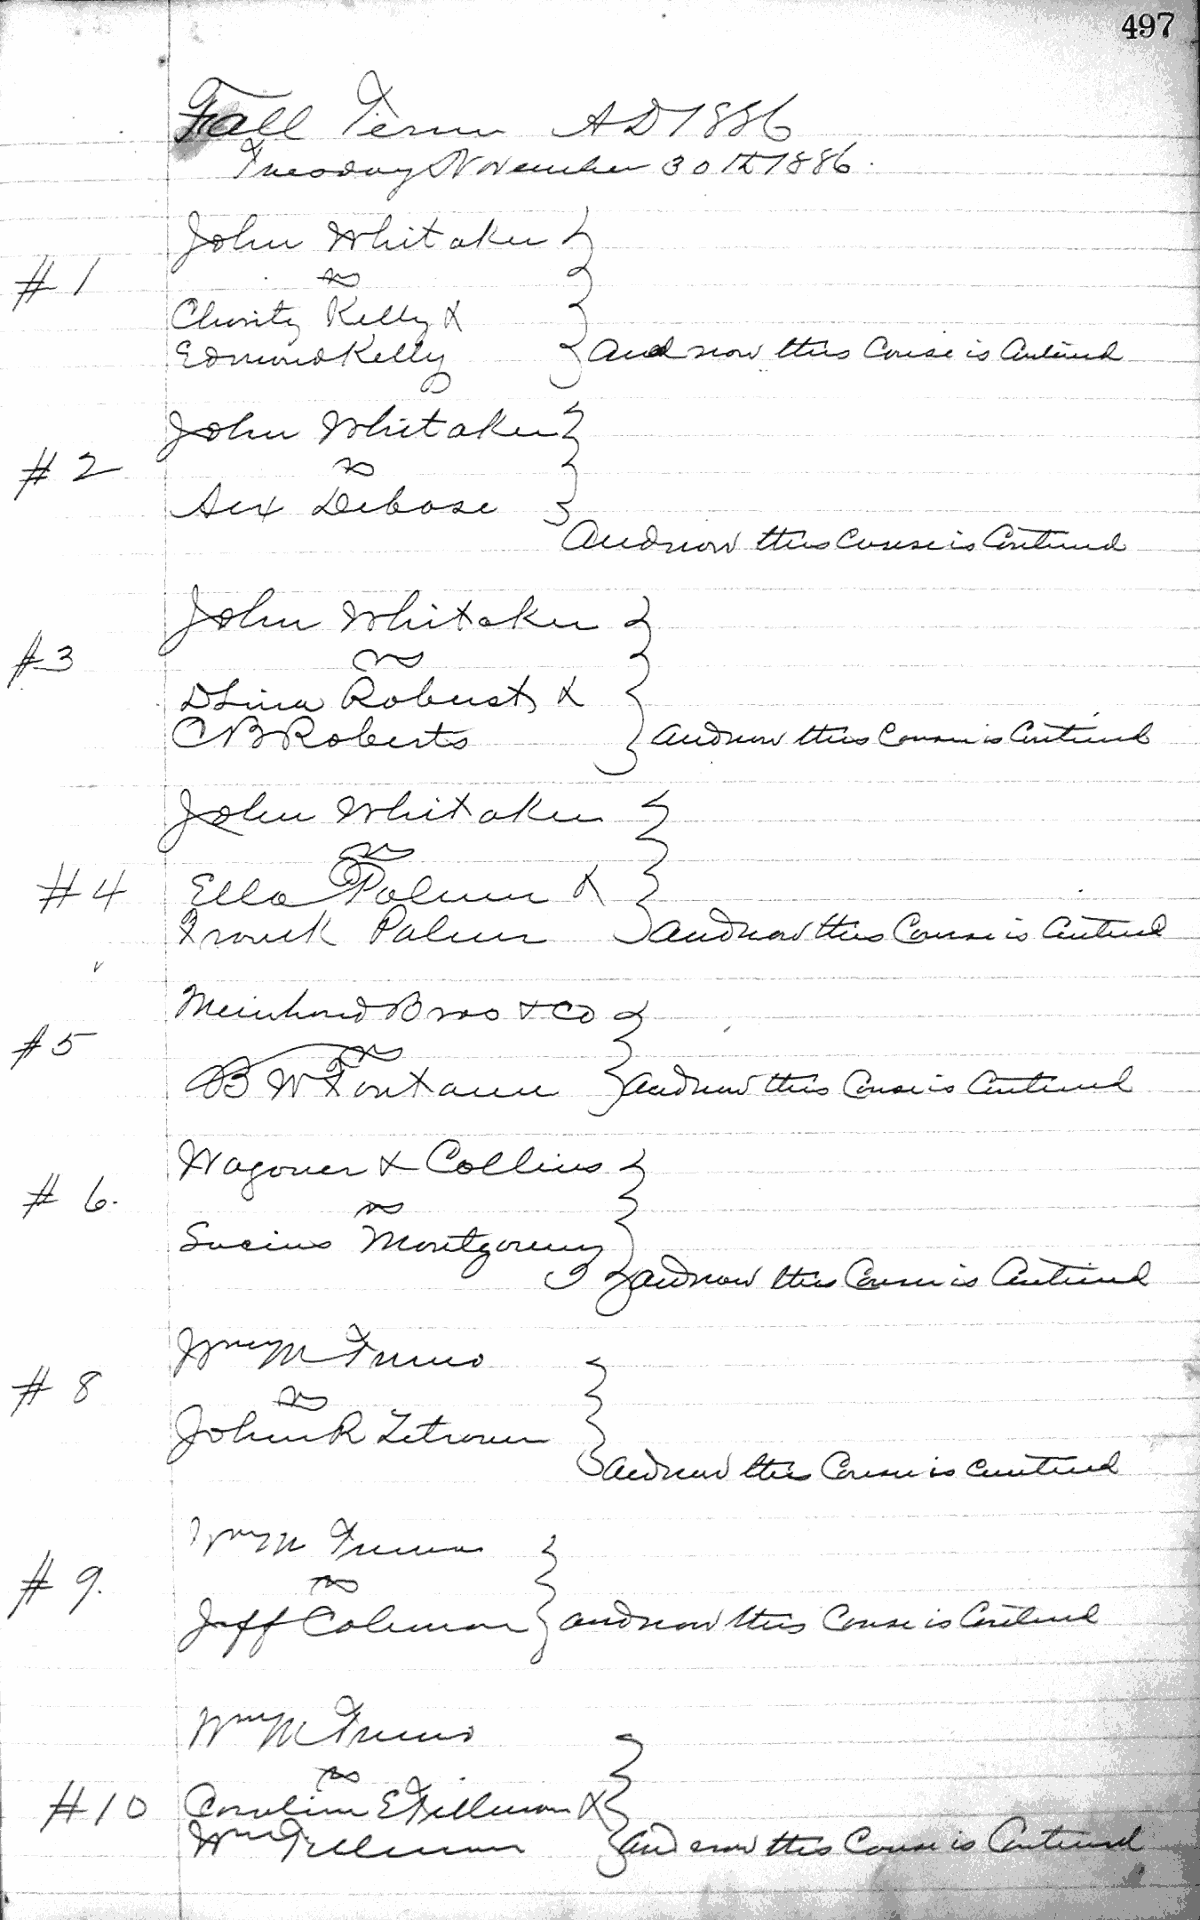 497
Fall Term AD 1886
Tuesday November 30th 1886.
John Whitaker
#1
vs
Charity Kelly &
Edmond Kelly
And now this Cause is Continued
John Whitaker
#2
vs
Alex Debose
And now this Cause is Continued
John Whitaker
#3
vs
Roberts &
C B Roberts
and now this Cause is Continued
John Whitaker
vs
#4
Ella Palmer &
Frank Palmer
and now this Cause is Continued
Meinhard Bros & Co
#5
vs
B W Fontaine
and now this Cause is Continued
Wagoner & Collins
#6.
vs
Lucius Montgomery
and now this Cause is Continued
Wm M
#8
vs
John R Zetrouer
and now this Cause is continued
Wm M
#9.
vs
Jeff Coleman
and now this Cause is Continued
Wm M
vs
#10
Caroline E Tillman &
Wm Tillman
and now this Cause is Continued